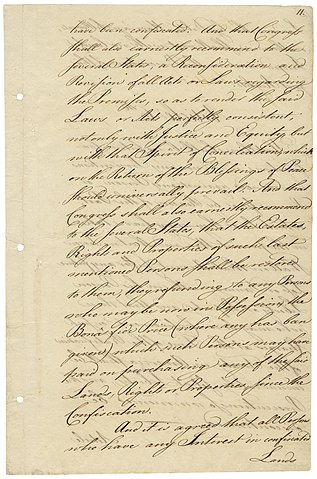 11.
have been confiscated. And that Congress
shall also earnestly recommend to the
several States, a Reconsideration and
Revision of all Acts or Laws regarding
the Premises, so as to render the said
Laws or Acts perfectly consistent,
not only with Justice and Equity, but
with that Spirit of Conciliation, which
on the Return of the Blessings of Peace
should universally prevail. And that
Congress shall also earnestly recommend
to the several States, that the Estates,
Rights and Properties of such last
mentioned Persons shall be restored
to them, they refunding to any Persons
who may be now in Possession, the
Bonâ fide Price (where any has been
given,) which such Persons may have
paid on purchasing any of the said
Lands, Rights, or Properties, since the
Confiscation.
And it is agreed that all Persons
who have any Interest in confiscated
Lands